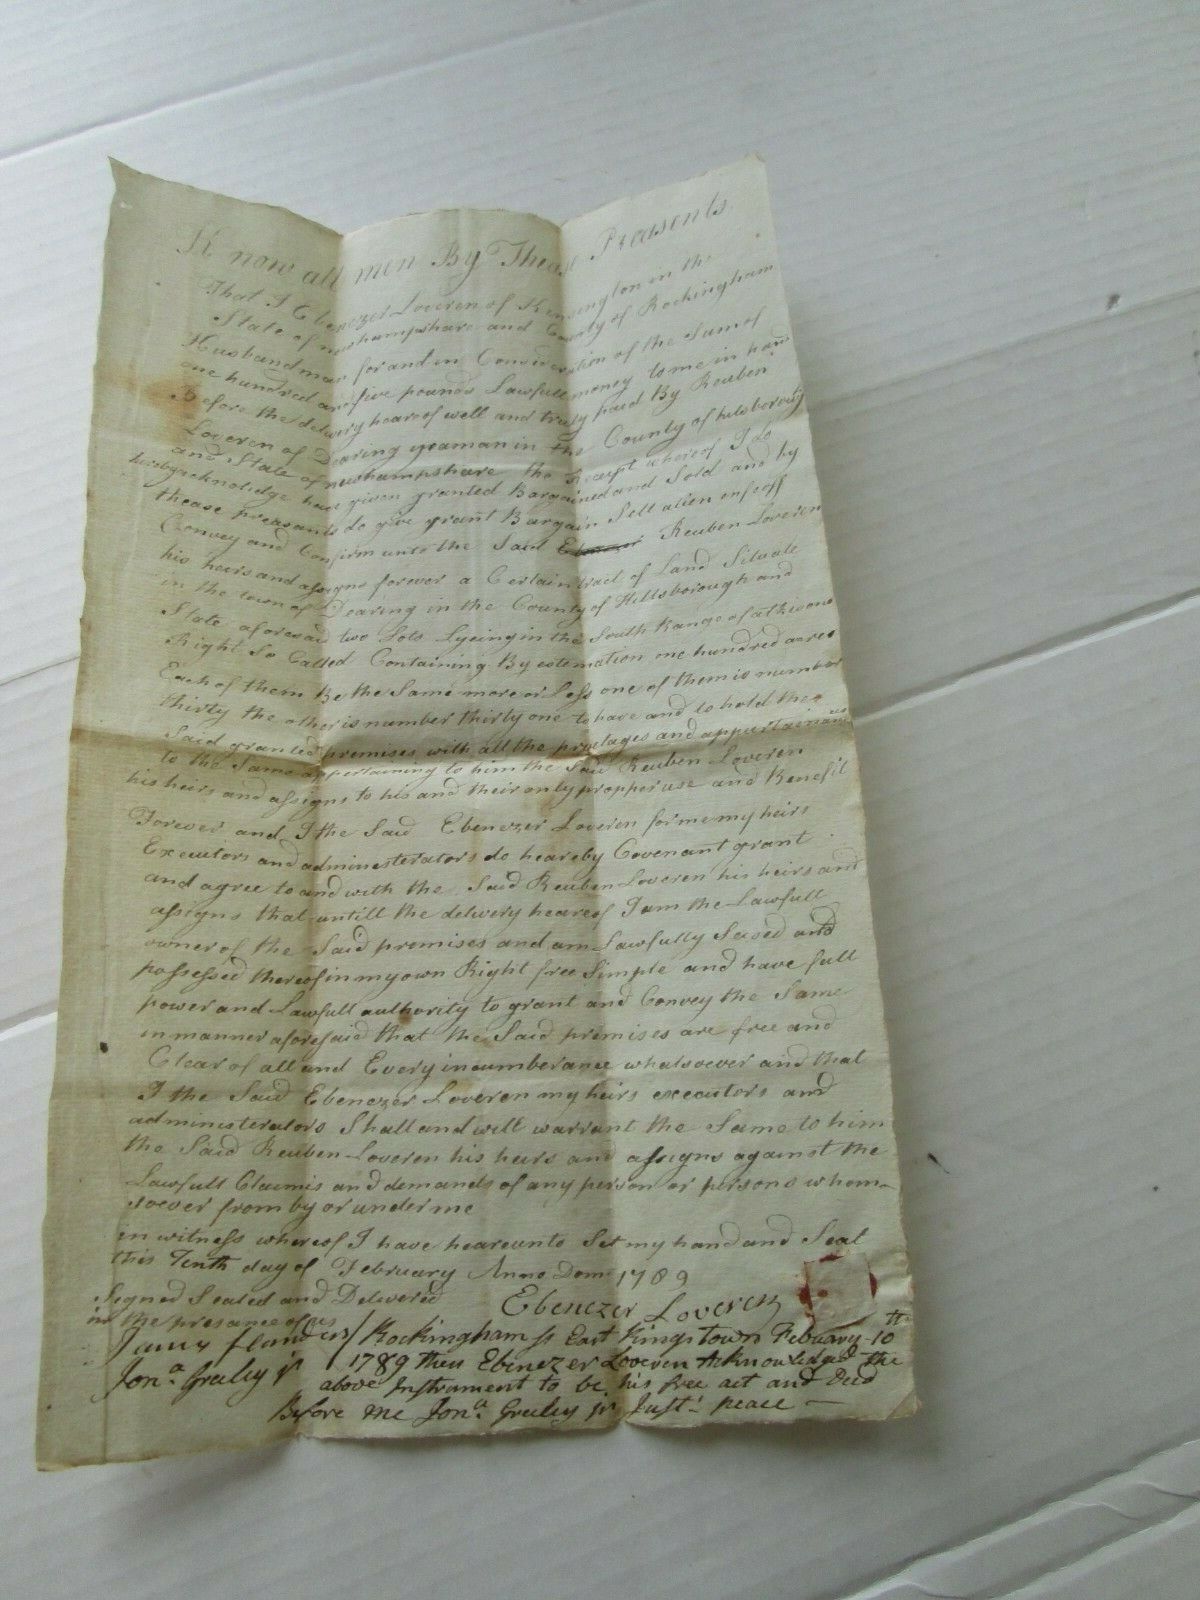 Know all men By Thease Preasents
That I Ebenezer Loveren of Kensington in the
State of newhampshare and County of Rockingham
Husbandman for and in Consideration of the Sum of
one hundred and five pounds Lawfull money to me in hand
Before the delivery heareof well and truly paid By Reuben
Loveren of Dearing yeaman in the County of hilsborough
and State of newhampshare the Receipt whereof I do
hereby acknolidge have given granted Bargained and Sold and by
thease preasants do give grant Bargain Sell alien enfeoff
Convey and Confirm unto the Said Ebenezer Reuben Loveren
his heirs and assigns forever a Certain tract of Land Situate
in the town of Dearing in the County of Hillsborough and
State aforesaid two Lots Lyeing in the South Range of atkisons
Right So Called Containing By estemation one hundred acres
Each of them Be the Same more or Less one of them is number
thirty the other is number thirty one to have and to hold the
Said granted premises with all the privelages and appurtainances
to the Same appertaining to him the Said Reuben Loveren
his heirs and assigns to his and their only propper use and Benefit
Forever and I the Said Ebenezer Loveren for me my heirs
Executors and administerators do heareby Covenant grant
and agree to and with the Said Reuben Loveren his heirs and
assigns that untill the delivery heareof I am the Lawfull
owner of the Said premises and am Lawfully Seased and
possessed thereof in my own Right free Simple and have full
power and Lawfull authority to grant and Convey the Same
in manner aforesaid that the Said premises are free and
Clear of all and Every incumberance whatsoever and that
I the Said Ebenezer Loveren my heirs executors and
administerators Shall and will warrant the Same to him
the Said Reuben Loveren his heirs and assigns against the
Lawfull Claimes and demands of any person or persons whom-
soever from by or under me
in witness whereof I have heareunto Set my hand and Seal
this Tenth day of February Anno Dom 1789
Signed Sealed and Delivered
in the presance of us
Ebenezer Loveren
James flanders
Jonª. Greley jr
Rockingham ss East Kingstown February 10th
1789 then Ebenezer Loveren Acknowledged the
above Instrument to be his free act and Deed
Before me Jonª. Greley jr Just: peace